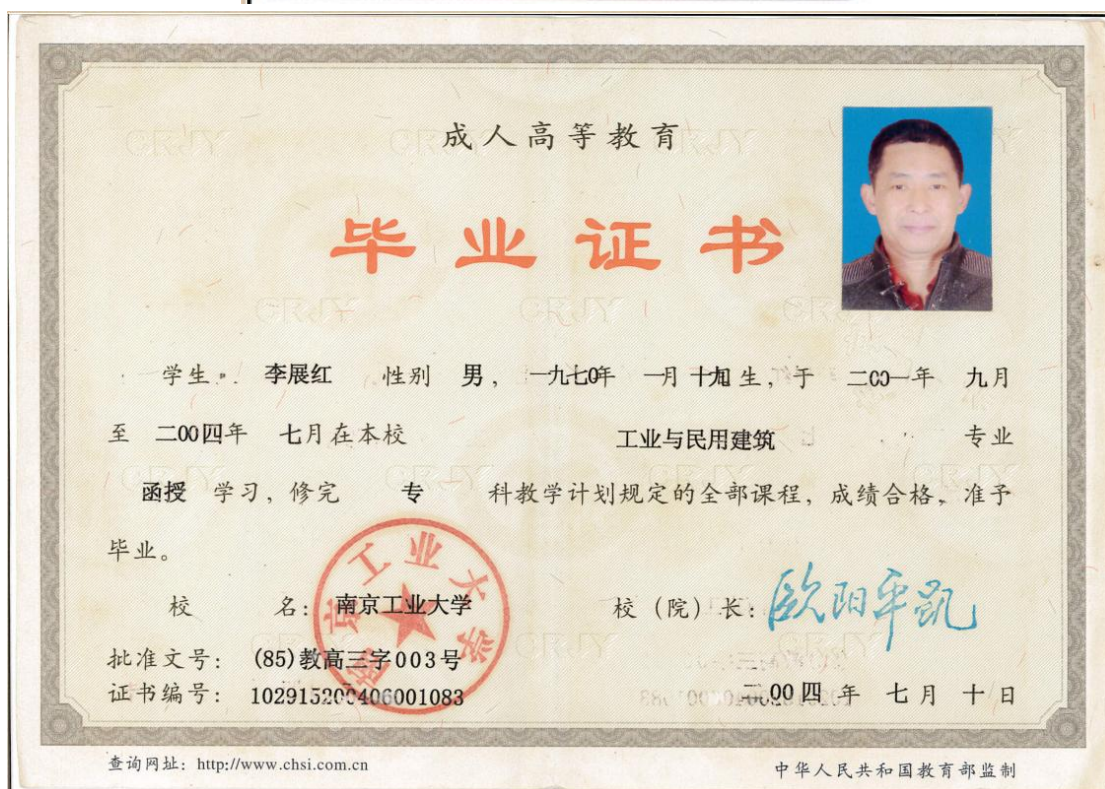 成人高等教育
毕业证书
学生 李展红 性别 男，一九七0年 一月 十九日生，于 二00一年 九月
至 二00四年 七月在本校 工业与民用建筑 专业
函授 学习，修完 专 科教学计划规定的全部课程，成绩合格，准予
毕业。
校 名：南京工业大学 校（院）长：欧阳平凯
南京工业大学
批准文号：(85)教高三字003号
证书编号：102915200406001083 二00四 年 七 月 十 日
查询网址：http://www.chsi.com.cn 中华人民共和国教育部监制